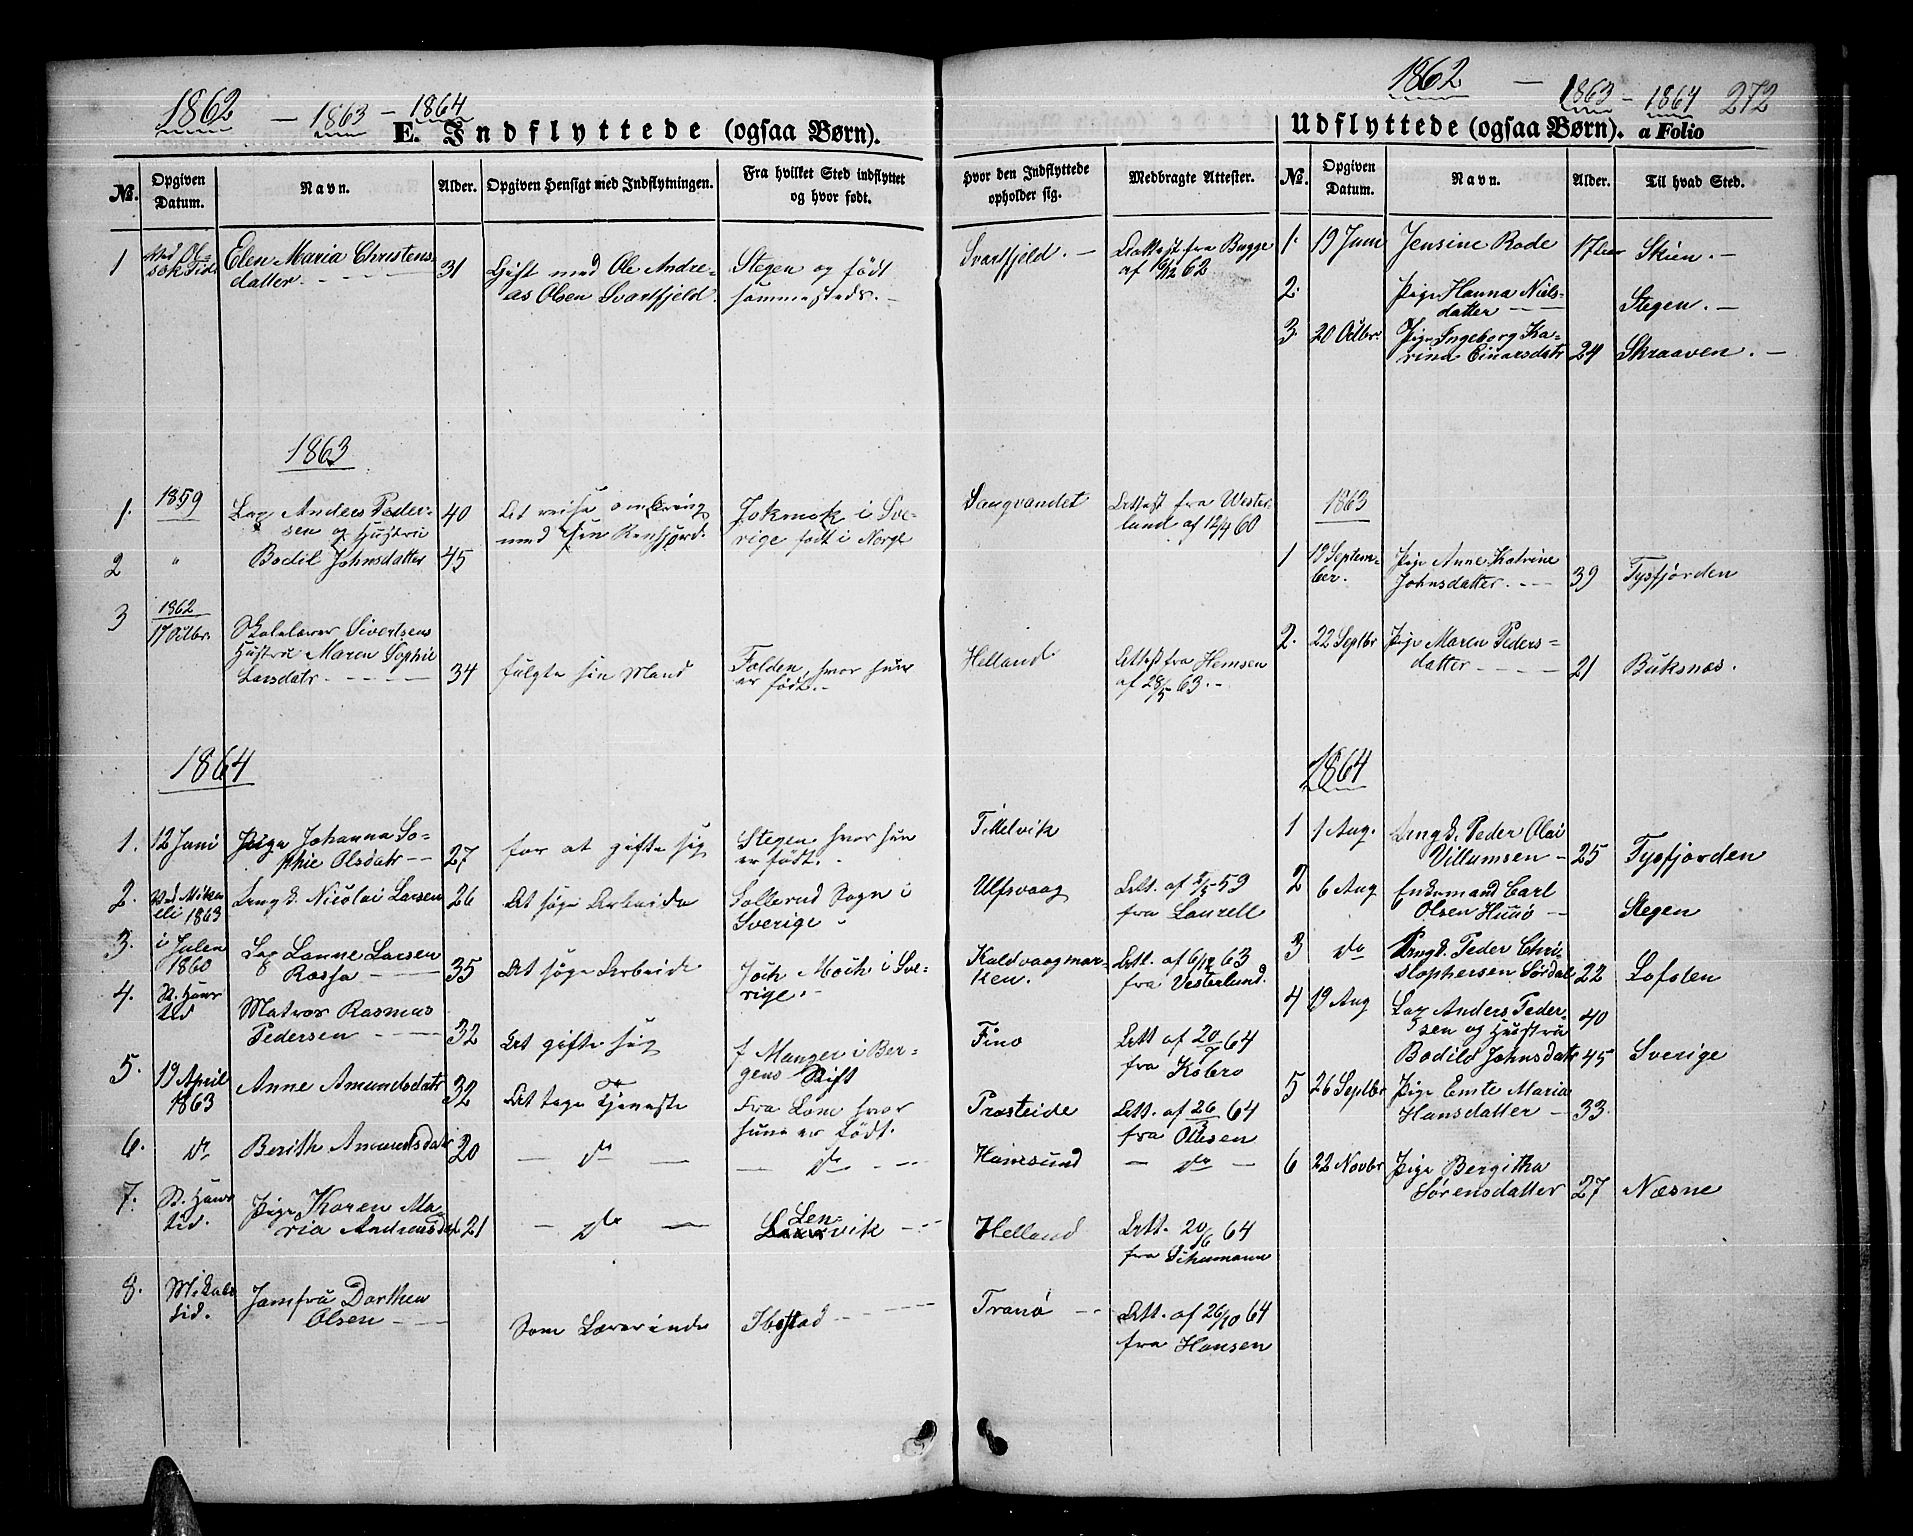 1862 - 1863 - 1864
E. Indflyttede (ogsaa Børn).
No. Opgiven Datum. Navn. Alder. Opgiven Hensigt med Indflytningen. Fra hvilket Sted indflyttet og hvor født.
1 Ved Olsok Tid Elen Maria Christens- 31 Gift med Ole Andre- Stegen og født
datter. as Olsen Svartfjeld. sammesteds.
1863
1. 1859 Lap Anders Peder- 40 At reise omkring Jokmok i Sve-
sen og Hustru med sin Renhjord. rige født i Norge
2 " Bodil Johnsdatter 45
3 1862
17 Octbr. Skolelærer Sivertsens
Hustru Maren Sophie Folden, hvor hun
Larsdatr. 34 fulgte sin Mand er født.
1864
1. 12 Juni Pige Johanna So- for at gifte sig Stegen, hvor hun
phie Olsdatr 27 er født.
2. Ved Mika- Ungk. Nicolai Larsen 26 At søge Arbeide Sollerud Sogn i
eli 1863 Sverige
3. i Julen Lap Lanne Larsen
1860 Rassa 35 At søge Arbeide Joch Moch i Sve-
rige.
4. St. Hans Matros Rasmus
tid Pedersen 32 At gifte sig f Manger i Ber-
gens Stift
5. 19 April Anne Amundsdatr 32 At tage Tjeneste Fra Lom hvor
1863 hun er født.
6. do Berith Amundsdatr 20 - do - - do -
7. St. Hans Pige Karen Ma- Len-
tid. ria Andreasdatr 21 - do - vik
8. Mikaels Jomfru Dorthea
tid. Olsen Som Lærerinde Ibestad
1862 - 1863 - 1864 272
Udflyttede (ogsaa Børn). a Folio
Hvor den Indflyttede opholder sig. Medbragte Attester. No. Opgiven Datum. Navn. Alder. Til hvad Sted.
Svartfjeld. Attest fra Bugge 1. 19 Juni Jensine Rode 17 Skien.
af 62
2. Pige Hanna Niels-
datter Stegen.
3 20 Octbr. Pige Ingeborg Ka-
rina Einarsdatr 24 Skraaven.
Sangvandet Attest fra Wester- 1863
lund af 12/4 60
1 19 Septem- Pige Anne Katrine
ber. Johnsdatter. 39 Tysfjorden
Helland. Attest fra Hemsen 2. 22 Septbr Pige Maren Peders-
af 28/5 63. datter 21 Buksnæs.
1864
Tittelvik 1 1 Aug. Ungk. Peder Olai
Villumsen 25 Tysfjorden
Ulfsvaag Att. af 2/5 59 2 6 Aug Enkemand Carl
fra Laurell Olsen Stegen
Kaldvaagmar- Att. af 6/12 63 3 do Ungk. Peder Chri-
ken. fra Vesterlund. stophersen Sørdal 22 Lofoten
4 19 Aug Lap Anders Peder- 40
Finø Att af 20/7 64 sen og Hustru
fra Købro Bodild Johnsdatr 45 Sverige
Præsteide Att. af 26/3 64 5 26 Septbr Pige Emte Maria
fra Ottesen Hansdatter 33.
Hamsund - do - 6 22 Novbr Pige Bergitha
Sørensdatter 27 Næsne
Helland Att. 20/6 64
fra Schumann
Tranø Att. af 26/10 64
fra Hansen